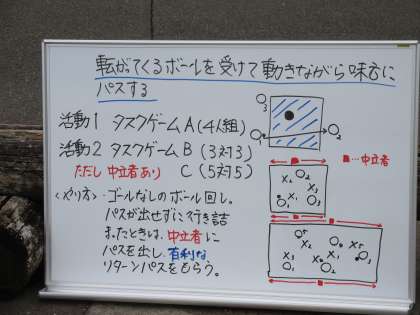 転がってくるボールを受けて動きながら味方に
パスする
活動1 タスクゲーム A (4人組)
活動2 タスクゲーム B (3対3)
ただし 中立者あり C (5対5)
<やり方> ・ゴールなしのボール回し。
パスが出せずに行き詰
まったときは、中立者に
パスを出し、有利な
リターンパスをもらう。
■…中立者